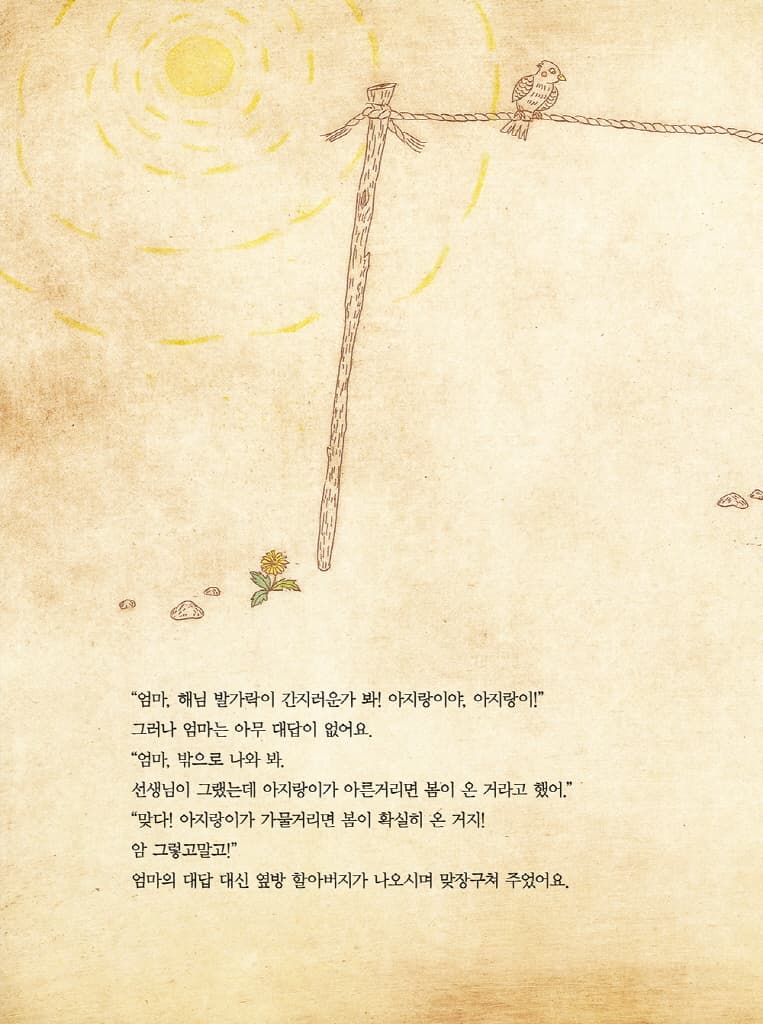 “엄마, 해님 발가락이 간지러운가 봐! 아지랑이야, 아지랑이!”
그러나 엄마는 아무 대답이 없어요.
“엄마, 밖으로 나와 봐.
선생님이 그랬는데 아지랑이가 아른거리면 봄이 온 거라고 했어.”
“맞다! 아지랑이가 가물거리면 봄이 확실히 온 거지!
암 그렇고말고!”
엄마의 대답 대신 옆방 할아버지가 나오시며 맞장구쳐 주었어요.